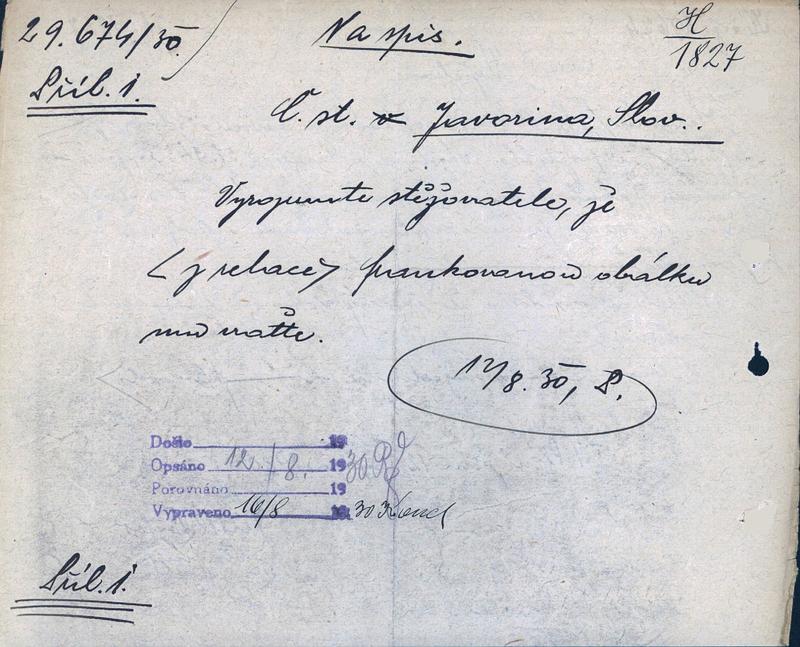 29.674/30.
H
1827
Na spis.
Příl. 1.
Č. st. Javorina, Slov..
Vyrozumíte stěžovatele, že
< z relace > frankovanou obálku
mu vraťte.
12/8. 30, P.
Došlo 19
Opsáno 12./8. 1930
Porovnáno 19
Vypraveno 16/8 1930
Příl. 1.